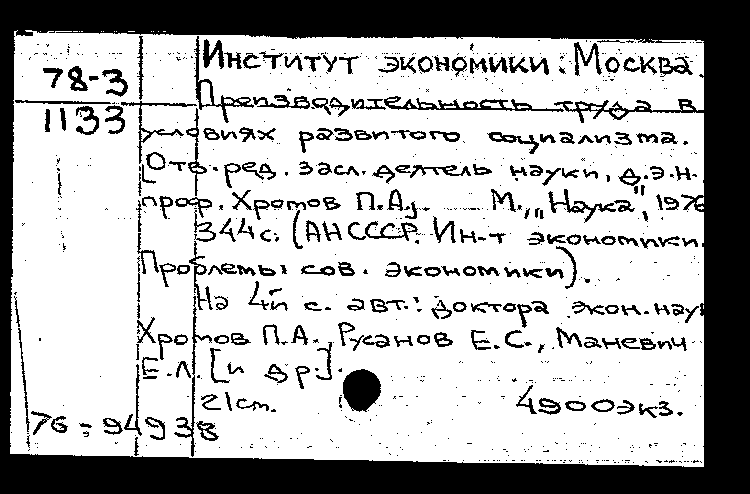 78-3
1133
Институт экономики. Москва.
Производительность труда в
условиях развитого социализма.
[Отв. ред. засл. деятель науки, д.э.н.
проф. Хромов П.А]. М., „Наука", 1976
344с. (АНСССР. Ин-т экономики.
Проблемы сов. экономики).
На 4й с. авт.: доктора экон. наук
Хромов П.А., Русанов Е.С., Маневич
Е.Л. [и др.].
21cm. 4900экз.
76=94938